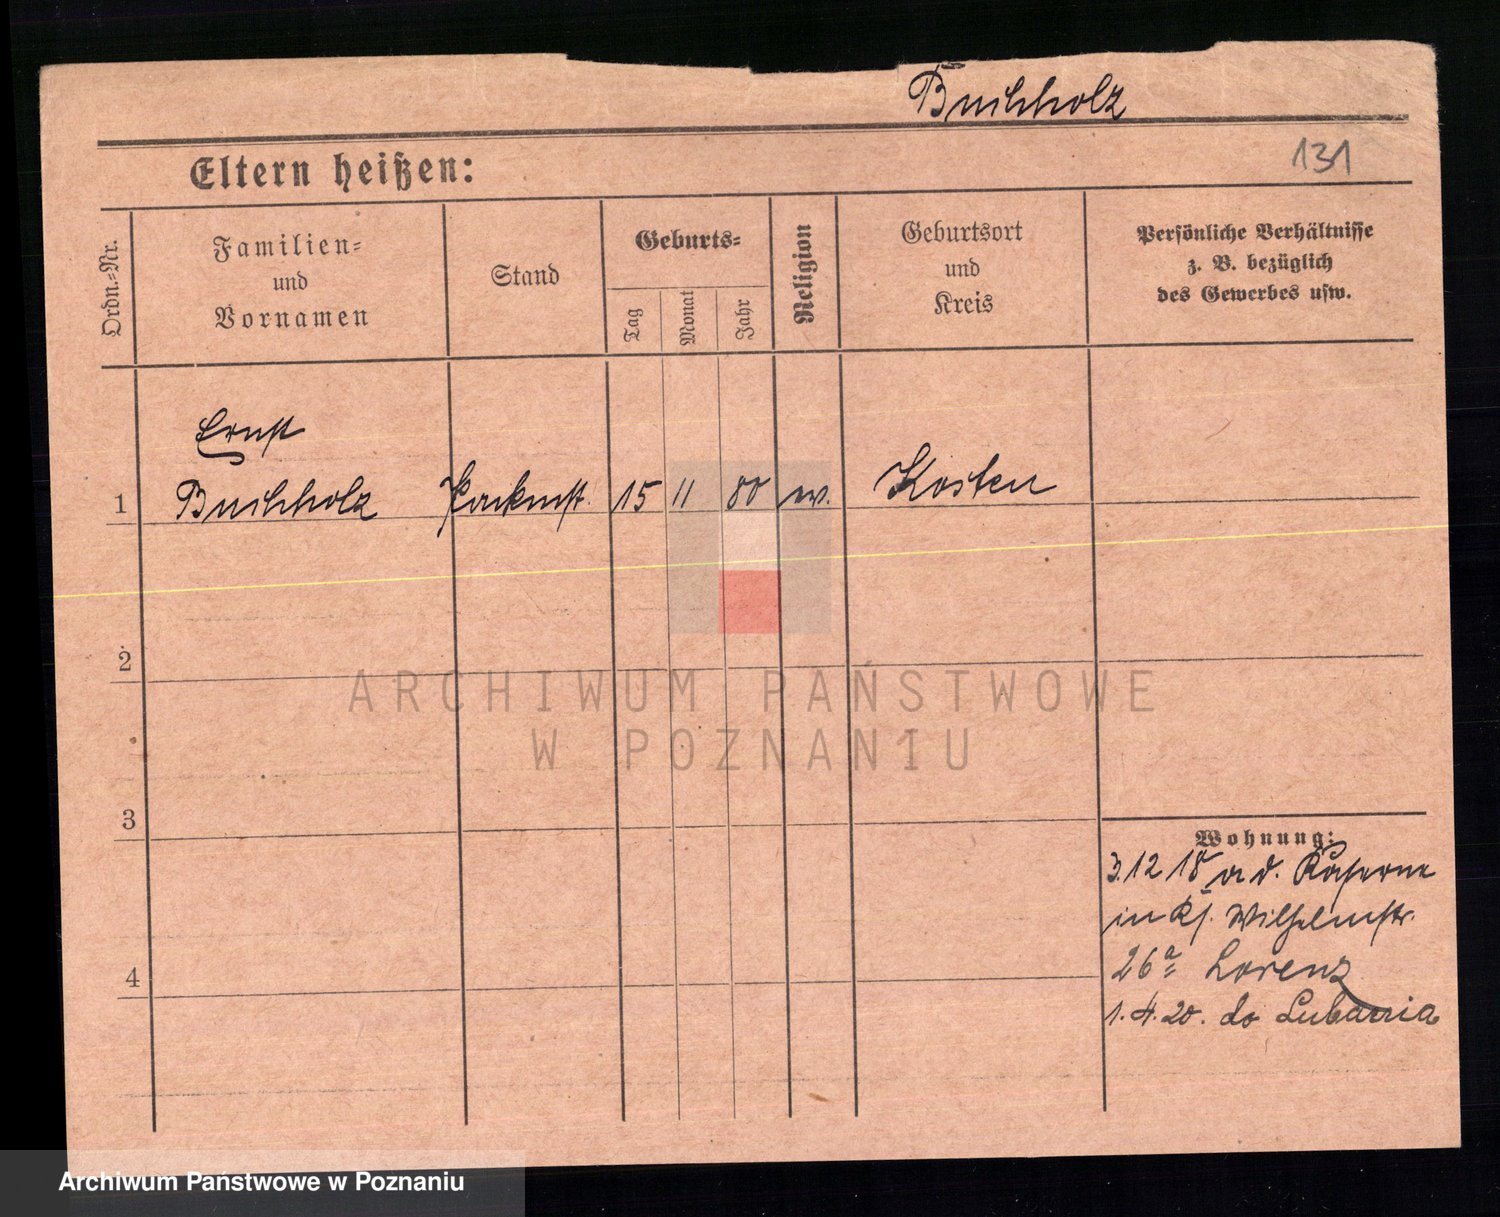 Buchholz
131
Eltern heißen:
Ordn.-Nr.
Familien-
und
Vornamen
Stand
Geburts-
Tag
Monat
Jahr
Religion
Geburtsort
und
Kreis
Persönliche Verhältnisse
z. B. bezüglich
des Gewerbes usw.
Ernst
1 Buchholz 15 11 80 ev. Kosten
2
3
4
Wohnung:
3.12 18 a d. Kaserne
in Wilhelmstr.
26a Lorenz
1.4.20. do
ARCHIWUM PAŃSTWOWE
W POZNANIU
Archiwum Państwowe w Poznaniu